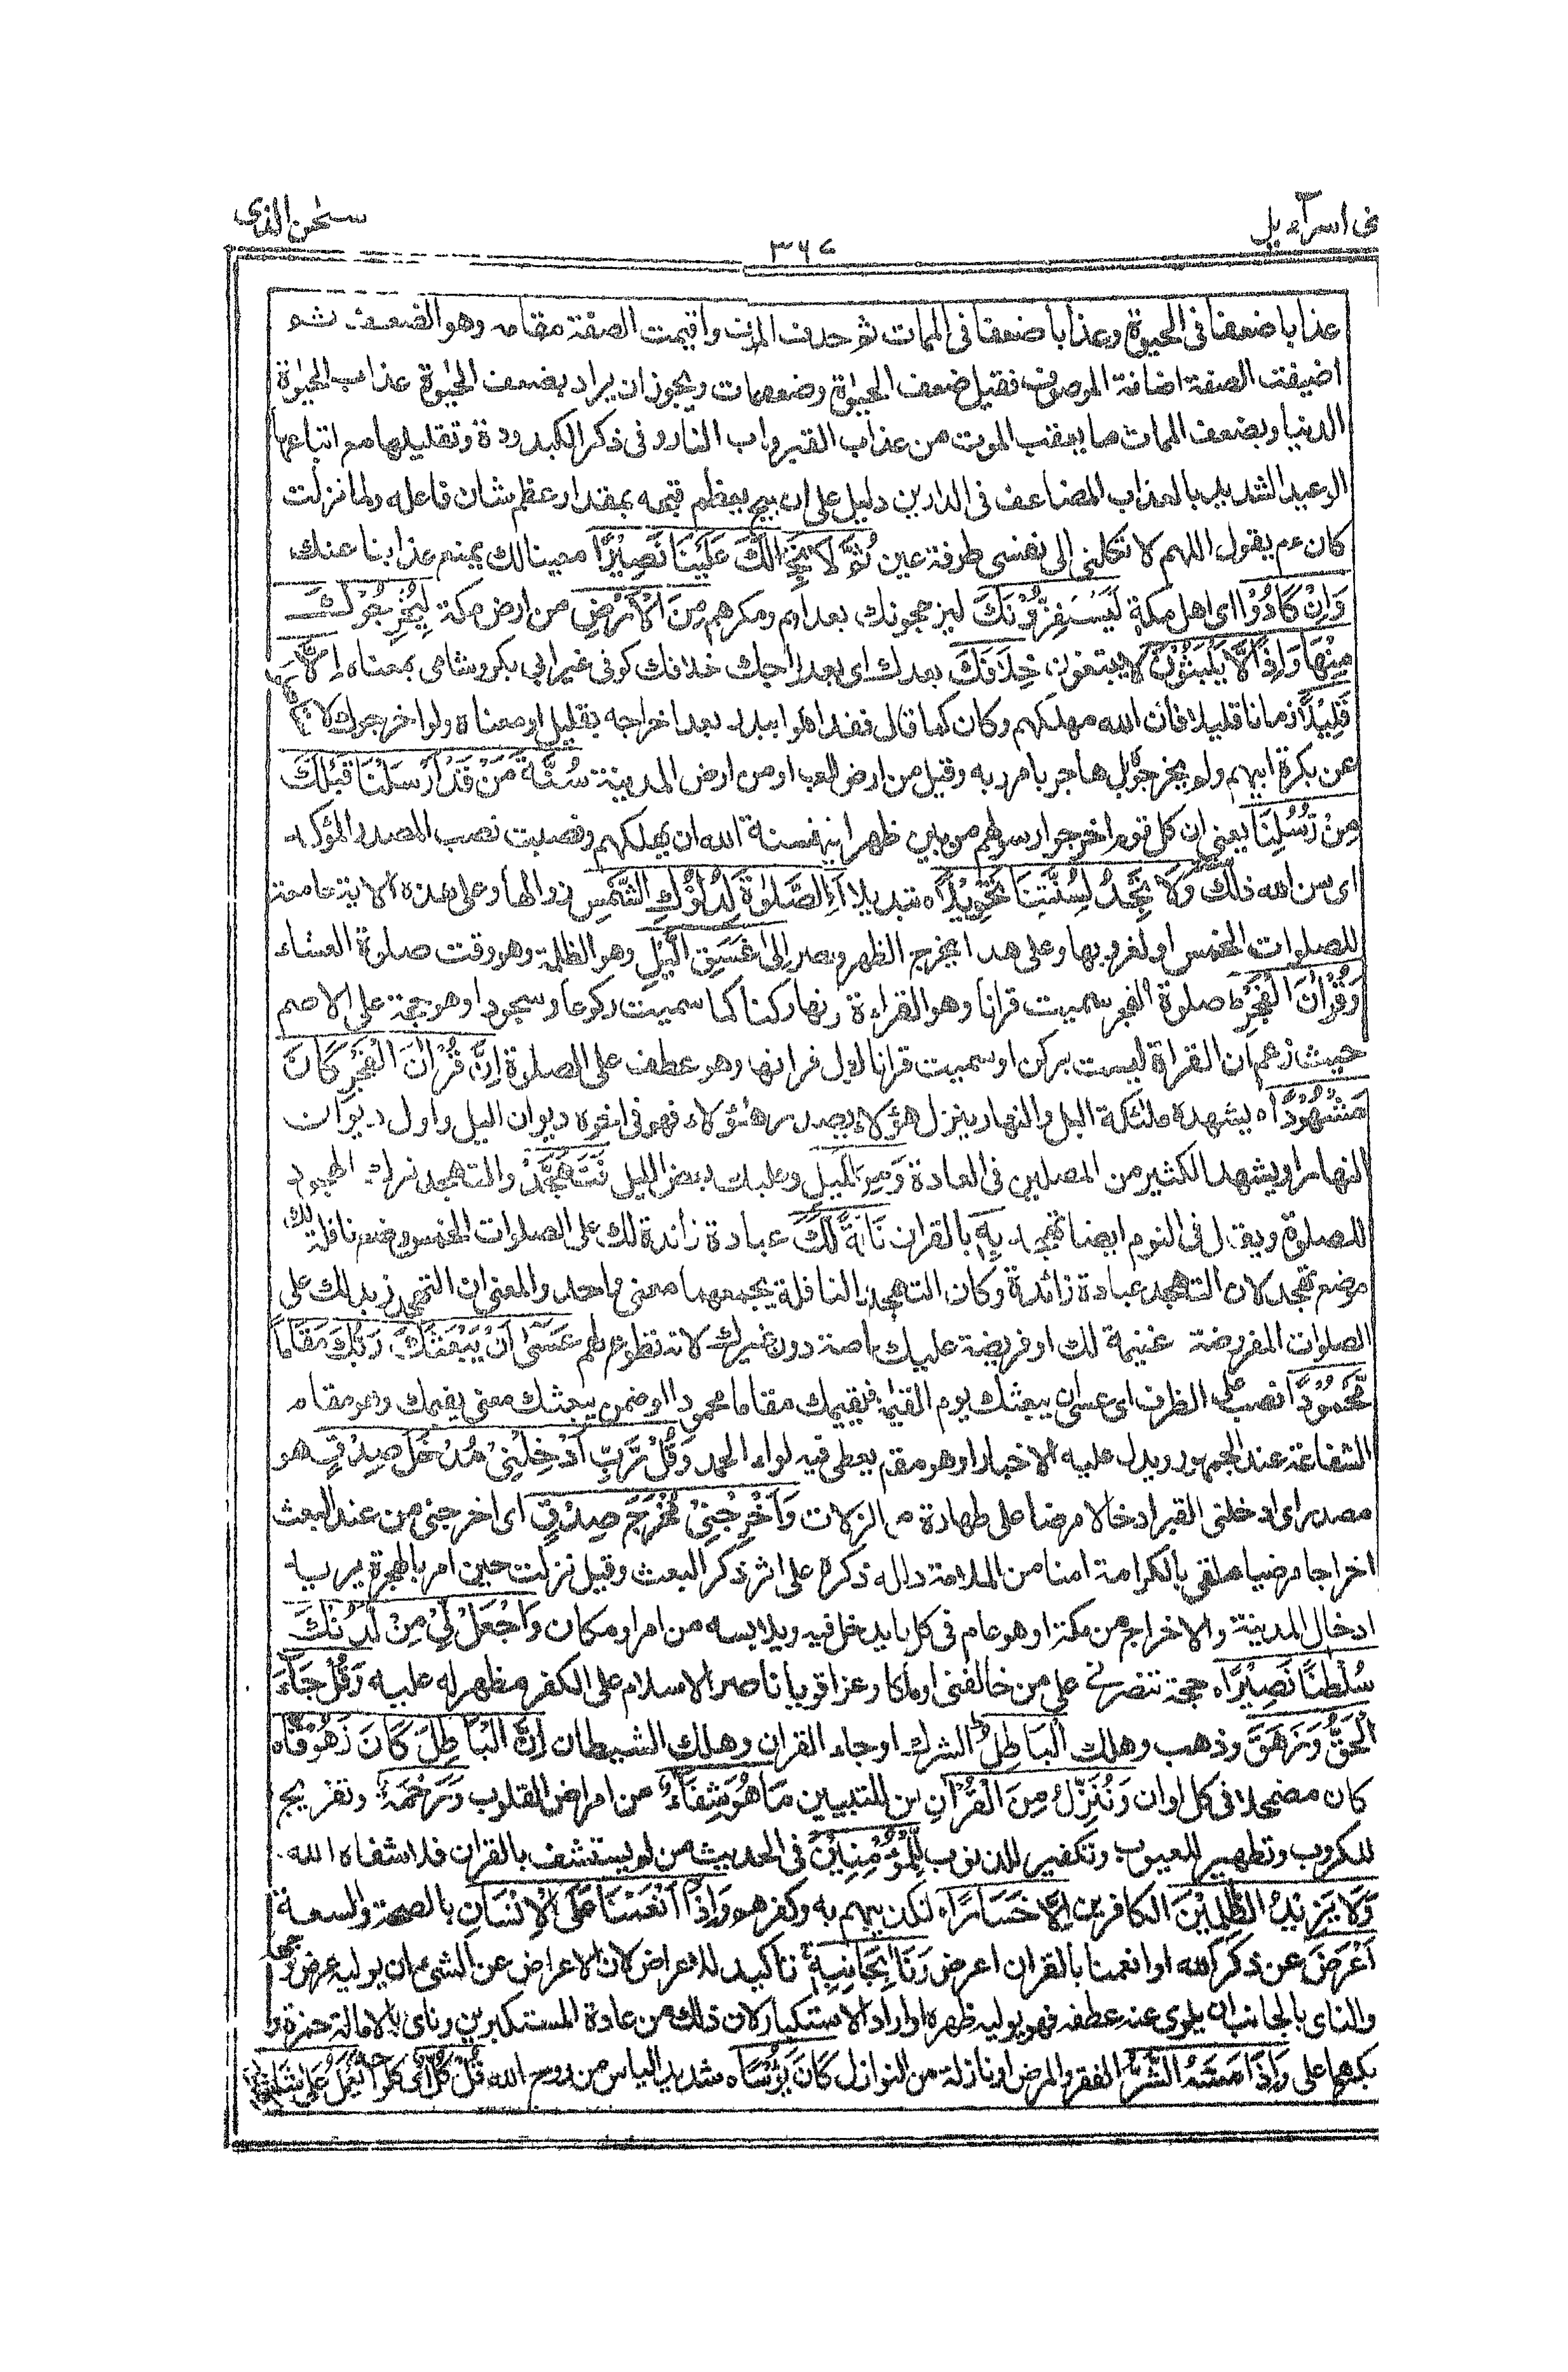 بنی اسرآءیل
سبحن الذی
۳۶۷
عذابا ضعفا فی الحیوة وعذابا ضعفا فی الممات ثم حذف الموصوف واقیمت الصفة مقامه وهو الضعف ثم
اضیفت الصفة اضافة الموصوف فقیل ضعف الحیوة وضعف الممات ویجوز ان یراد بضعف الحیوة عذاب الحیوة
الدنیا وبضعف الممات ما یعقب الموت من عذاب القبر وعذاب النار وفی ذکر الکیدودة وتقلیلها مع اتباعها
الوعید الشدید بالعذاب المضاعف فی الدارین دلیل علی ان القبیح یعظم قبحه بمقدار عظم شان فاعله ولما نزلت
کان عم یقول اللهم لا تکلنی الی نفسی طرفة عین ثُمَّ لَا تَجِدُ لَكَ عَلَيْنَا نَصِيْرًا معینا لك یمنع عذابنا عنك
وَاِنْ كَادُوْا ای اهل مکة لَيَسْتَفِزُّوْنَكَ لیزعجونك بعداوتهم ومکرهم مِنَ الْاَرْضِ من ارض مکة لِيُخْرِجُوْكَ
مِنْهَا وَاِذًا لَّا يَلْبَثُوْنَ لا یبقون خِلَافَكَ بعدك ای بعد اخراجك خلافك کوفی غیر ابی بکر وشامی بمعناه اِلَّا
قَلِيْلًا زمانا قلیلا فان الله مهلکهم وکان کما قال فقد اهلکوا ببدر بعد اخراجه بقلیل او معناه ولو اخرجوك لاستؤصلوا
عن بکرة ابیهم ولم یخرجوه بل هاجر بامر ربه وقیل من ارض العرب او من ارض المدینة سُنَّةَ مَنْ قَدْ اَرْسَلْنَا قَبْلَكَ
مِنْ رُّسُلِنَا یعنی ان کل قوم اخرجوا رسولهم من بین ظهرانیهم فسنة الله ان یهلکهم ونصبت نصب المصدر المؤکد
ای سن الله ذلك وَلَا تَجِدُ لِسُنَّتِنَا تَحْوِيْلًا تبدیلا اَقِمِ الصَّلٰوةَ لِدُلُوْكِ الشَّمْسِ زوالها وعلی هذه الایة جامعة
للصلوات الخمس او لغروبها وعلی هذا یخرج الظهر والعصر اِلٰى غَسَقِ الَّيْلِ وهو الظلمة وهو وقت صلوة العشاء
وَقُرْاٰنَ الْفَجْرِ صلوة الفجر سمیت قرانا وهو القراءة لانها رکن کما سمیت رکوعا وسجودا وهو حجة علی الاصم
حیث زعم ان القراة لیست برکن او سمیت قرانا لطول قرانها وهو عطف علی الصلوة اِنَّ قُرْاٰنَ الْفَجْرِ كَانَ
مَشْهُوْدًا یشهده ملئکة اللیل والنهار ینزل هؤلاء ویصعد هؤلاء فهو فی اخر دیوان اللیل واول دیوان
النهار او یشهده الکثیر من المصلین فی العادة وَمِنَ الَّيْلِ وعلیك بعض اللیل فَتَهَجَّدْ والتهجد ترك الهجود
للصلوة ویقال فی النوم ایضا تهجد بِهٖ بالقران نَافِلَةً لَّكَ عبادة زائدة لك علی الصلوات الخمس وضع نافلة لك
موضع تهجدا لان التهجد عبادة زائدة وکان التهجد والنافلة یجمعهما معنی واحد والمعنی ان التهجد زید لك علی
الصلوات المفروضة غنیمة لك او فریضة علیك خاصة دون غیرك لانه تطوع لهم عَسٰٓى اَنْ يَّبْعَثَكَ رَبُّكَ مَقَامًا
مَّحْمُوْدًا نصب علی الظرف ای عسی ان یبعثك یوم القیمة فیقیمك مقاما محمودا او ضمن یبعثك معنی یقیمك وهو مقام
الشفاعة عند الجمهور ویدل علیه الاخبار او هو مقام یعطی فیه لواء الحمد وَقُلْ رَّبِّ اَدْخِلْنِيْ مُدْخَلَ صِدْقٍ هو
مصدر ای ادخلنی القبر ادخالا مرضیا علی طهارة من الزلات وَّاَخْرِجْنِيْ مُخْرَجَ صِدْقٍ ای اخرجنی من عند البعث
اخراجا مرضیا ملقی بالکرامة امنا من الملامة دلیله ذکره علی اثر ذکر البعث وقیل نزلت حین امر بالهجرة یرید
ادخال المدینة والاخراج من مکة او هو عام فی کل ما یدخل فیه ویلابسه من امر او مکان وَّاجْعَلْ لِّيْ مِنْ لَّدُنْكَ
سُلْطٰنًا نَّصِيْرًا حجة تنصرنی علی من خالفنی او ملکا وعزا قویا ناصرا للاسلام علی الکفر مظهرا له علیه وَقُلْ جَآءَ
الْحَقُّ وَزَهَقَ وذهب وهلك الْبَاطِلُ الشرك او جاء القران وهلك الشیطان اِنَّ الْبَاطِلَ كَانَ زَهُوْقًا
کان مضمحلا فی کل اوان وَنُنَزِّلُ مِنَ الْقُرْاٰنِ من للتبیین مَا هُوَ شِفَآءٌ من امراض القلوب وَّرَحْمَةٌ وتفریج
للکروب وتطهیر للعیوب وتکفیر للذنوب لِّلْمُؤْمِنِيْنَ فی الحدیث من لم یستشف بالقران فلا شفاه الله
وَلَا يَزِيْدُ الظّٰلِمِيْنَ الکافرین اِلَّا خَسَارًا لتکذیبهم به وکفرهم وَاِذَآ اَنْعَمْنَا عَلَى الْاِنْسَانِ بالصحة والسعة
اَعْرَضَ عن ذکر الله او انعمنا بالقران اعرض وَنَاٰ بِجَانِبِهٖ تاکید للاعراض لان الاعراض عن الشیء ان یولیه عرض وجهه
والنای بالجانب ان یلوی عنه عطفه فهو یولیه ظهره او اراد الاستکبار لان ذلك من عادة المستکبرین ونای بالامالة حمزة و
بکسرها علی وَاِذَا مَسَّهُ الشَّرُّ الفقر والمرض او نازلة من النوازل كَانَ يَـُٔوْسًا شدید الیاس من روح الله قُلْ كُلٌّ ای کل احد يَّعْمَلُ عَلٰى شَاكِلَتِهٖ